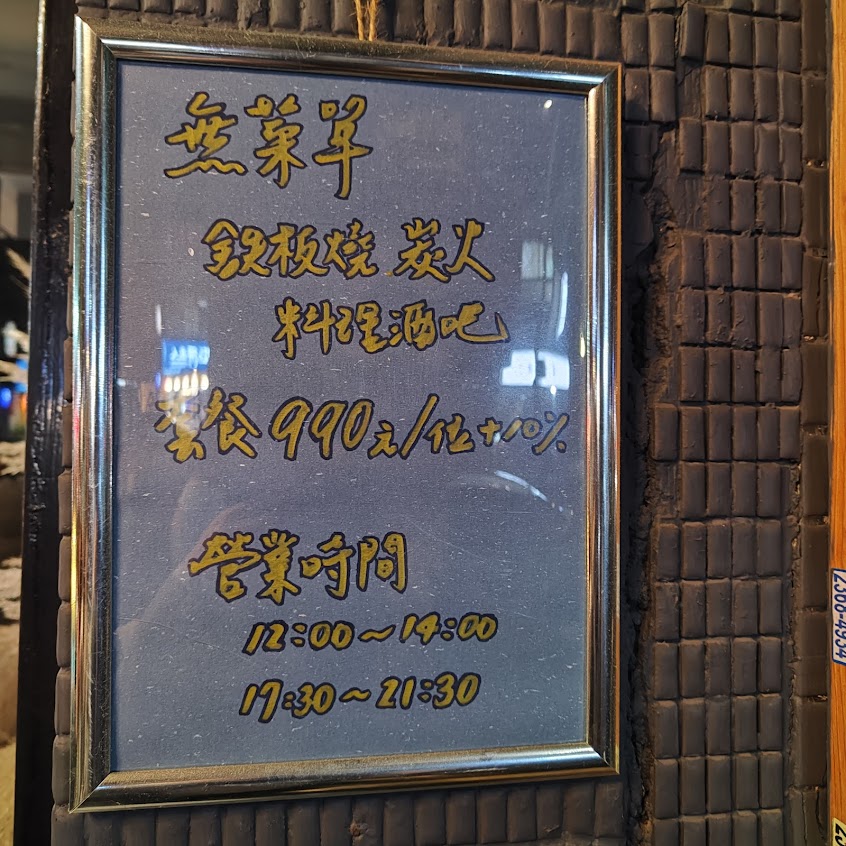 無菜單
鉄板燒 炭火
料理酒吧
套餐 990元/位+10%
營業時間
12:00~14:00
17:30~21:30
2368-4934